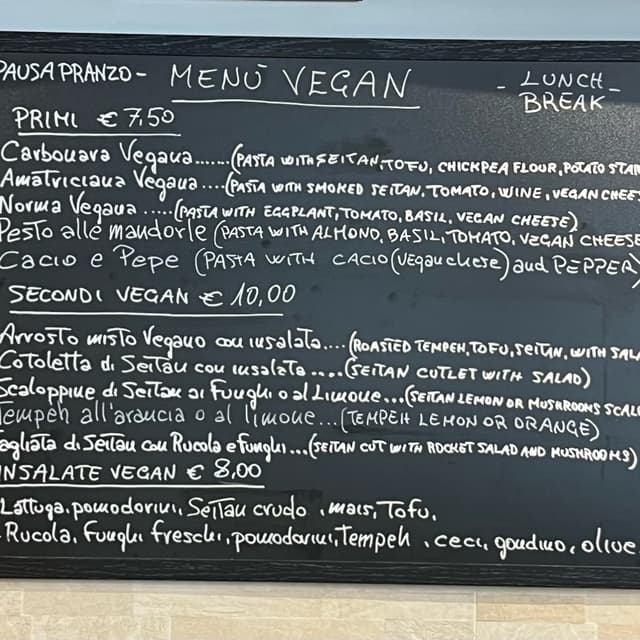 PAUSA PRANZO - MENÙ VEGAN - LUNCH BREAK -
PRIMI € 7.50
Carbonara Vegana...... (PASTA WITH SEITAN, TOFU, CHICKPEA FLOUR, POTATO STAR
Amatriciana Vegana .... (PASTA WITH SMOKED SEITAN, TOMATO, WINE, VEGAN CHEES
Norma Vegana ..... (PASTA WITH EGGPLANT, TOMATO, BASIL, VEGAN CHEESE)
Pesto alle mandorle (PASTA WITH ALMOND, BASIL, TOMATO, VEGAN CHEESE
Cacio e Pepe (PASTA WITH CACIO (vegan cheese) and PEPPER)
SECONDI VEGAN € 10,00
Arrosto misto Vegano con insalata.... (ROASTED TEMPEH, TOFU, SEITAN, WITH SALA
Cotoletta di Seitan con insalata ..... (SEITAN CUTLET WITH SALAD)
Scaloppine di Seitan ai Funghi o al Limone... (SEITAN LEMON OR MUSHROOMS SCAL
Tempeh all'arancia o al limone... (TEMPEH LEMON OR ORANGE)
agliata di Seitan con Rucola e Funghi... (SEITAN CUT WITH ROCKET SALAD AND MUSHROOMS)
INSALATE VEGAN € 8,00
Lattuga, pomodorini, Seitan crudo, mais, Tofu.
Rucola, Funghi freschi, pomodorini, Tempeh, ceci, goudino, olive